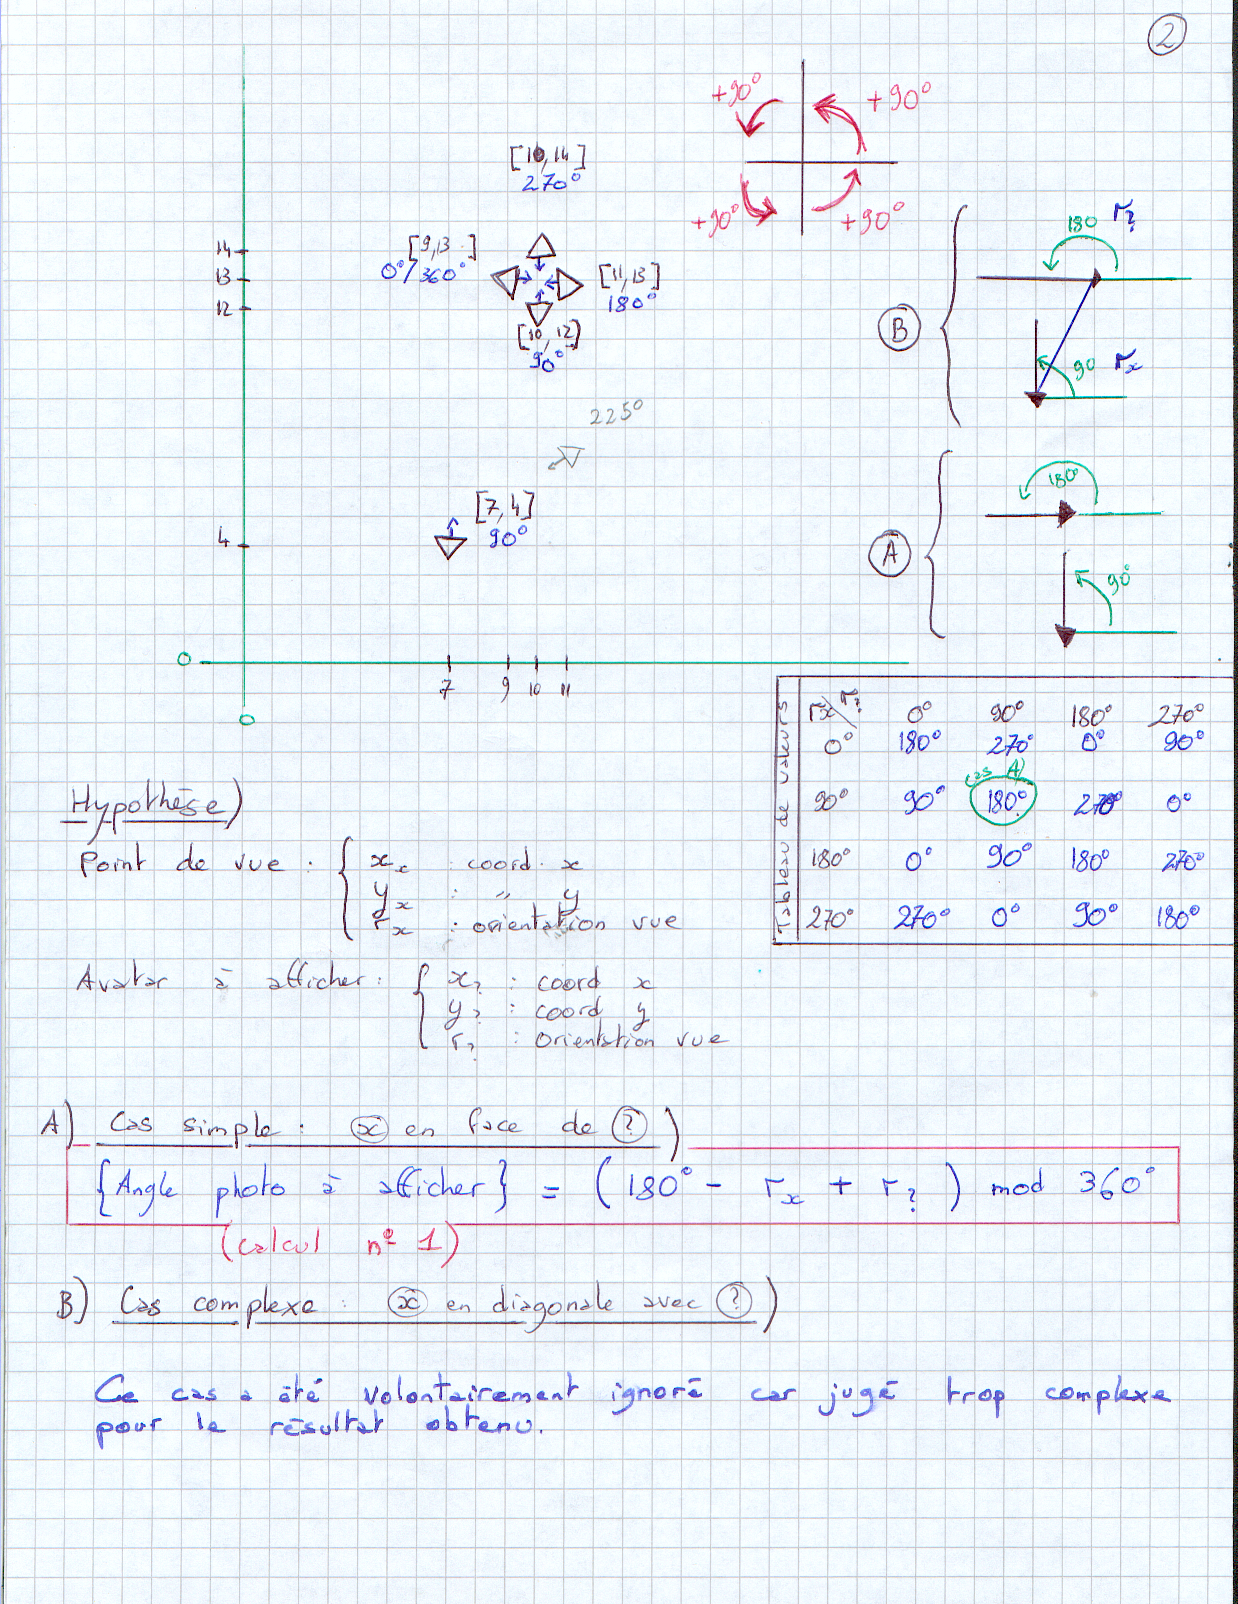 2
+90° +90°
+90° +90°
[10, 14]
270°
[9,13]
0°/360°
[11,13]
180°
[10, 12]
90°
14
13
12
225°
[7,4]
90°
4
0
0
7 9 10 11
B
180 r?
90 rx
A
180°
90°
Tableau de valeurs
rx r? 0° 90° 180° 270°
0° 180° 270° 0° 90°
cas A)
90° 90° 180° 270° 0°
180° 0° 90° 180° 270°
270° 270° 0° 90° 180°
Hypothèse)
Point de vue : { xx : coord. x
yx : " y
rx : orientation vue
Avatar à afficher : { x? : coord x
y? : coord y
r? : orientation vue
A) Cas simple : x en face de ? )
{Angle photo à afficher} = (180° - rx + r?) mod 360°
(calcul n° 1)
B) Cas complexe : x en diagonale avec ? )
Ce cas a été volontairement ignoré car jugé trop complexe
pour le résultat obtenu.